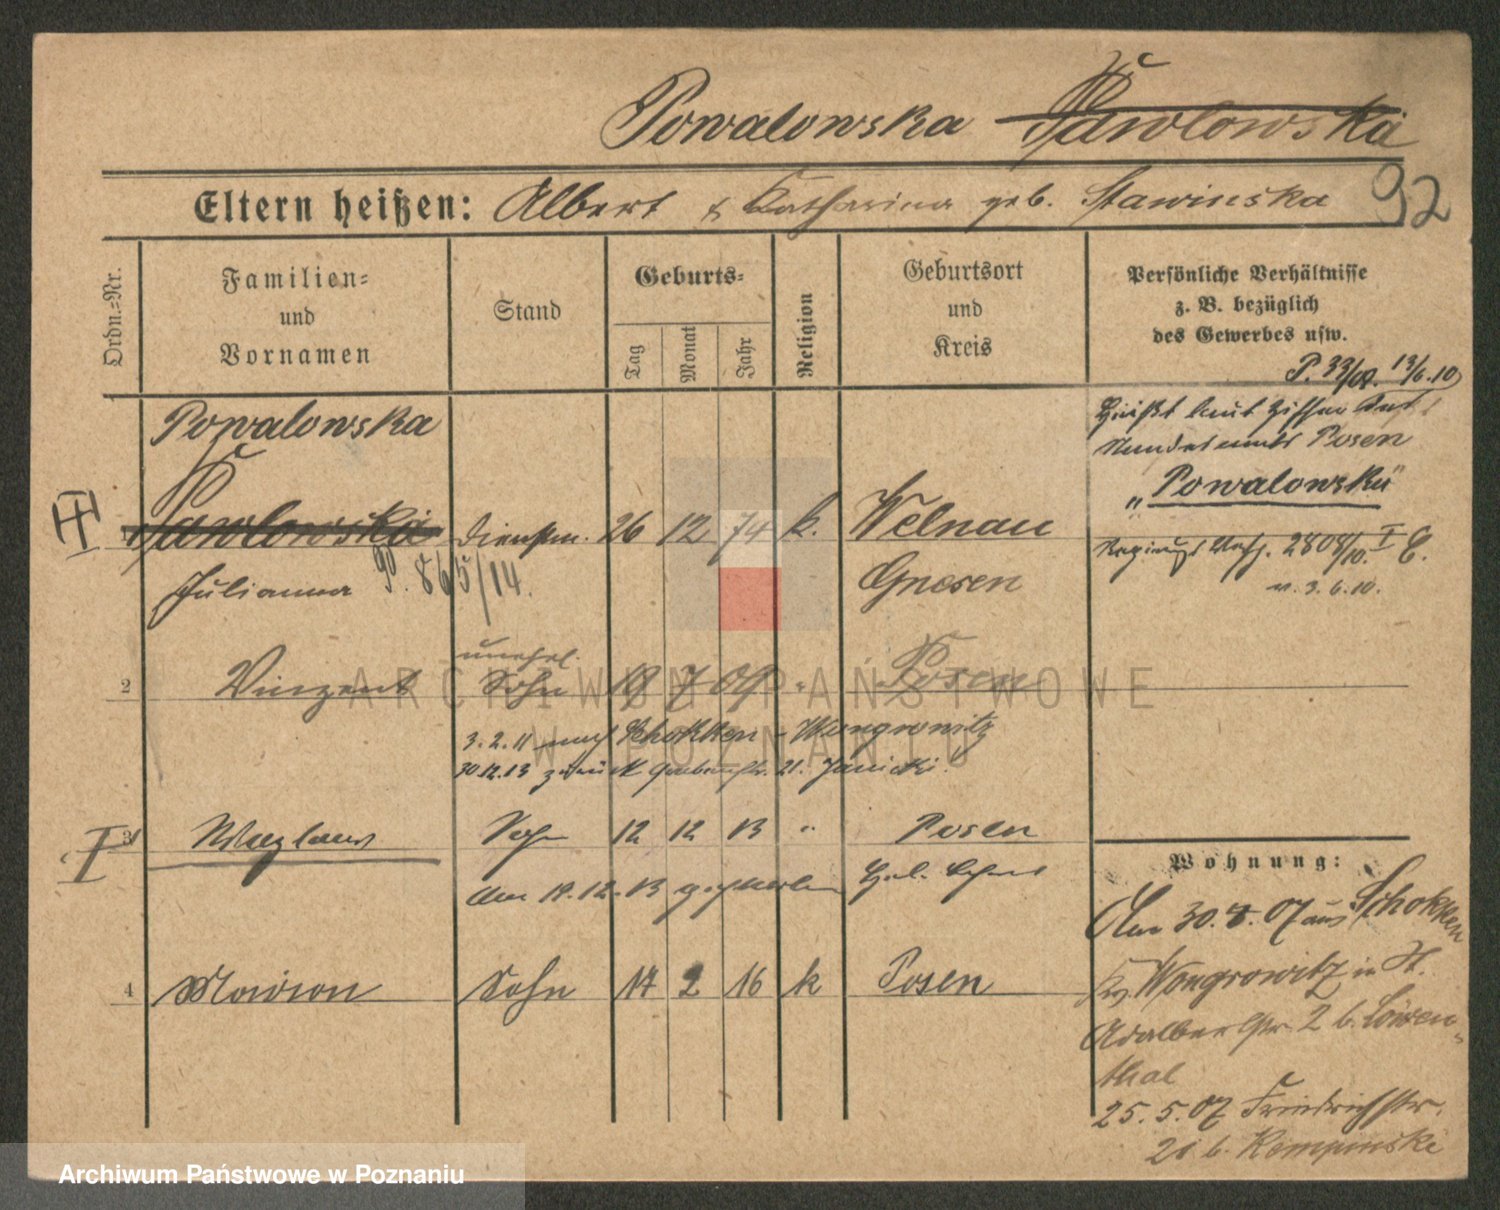 Powalowska Pawlowska
Eltern heißen: Albert & Katharina geb. Stawinska
92
Ordn.=Nr.
Familien=
und
Vornamen
Stand
Geburts=
Tag
Monat
Jahr
Religion
Geburtsort
und
Kreis
Persönliche Verhältnisse
z. B. bezüglich
des Gewerbes usw.
P. 33/10. 13/6.10
Powalowska
Heißt laut
Posen
"Powalowska"
1 Pawlowska Dienstm. 26 12 74 k. Welnau
2808/10. I E.
v. 3.6.10.
Julianna 865/14. Gnesen
unehel.
2 Vinzent Sohn 19 7 09 " Posen
3.2.11 nach Schokken - Wongrowitz
30.12.13 zurück 21. Janicki.
I 3 Sohn 12 12 13 " Posen
am 19.12.13
Wohnung:
Am 30.4.07 aus Schokken
4 Marion Sohn 17 2 16 k Posen
Kr. Wongrowitz in H.
Adalbertstr. 2 b. Löwen-
thal
25.5.07 Friedrichstr.
21 b. Kempinski
ARCHIWUM PAŃSTWOWE
W POZNANIU
Archiwum Państwowe w Poznaniu